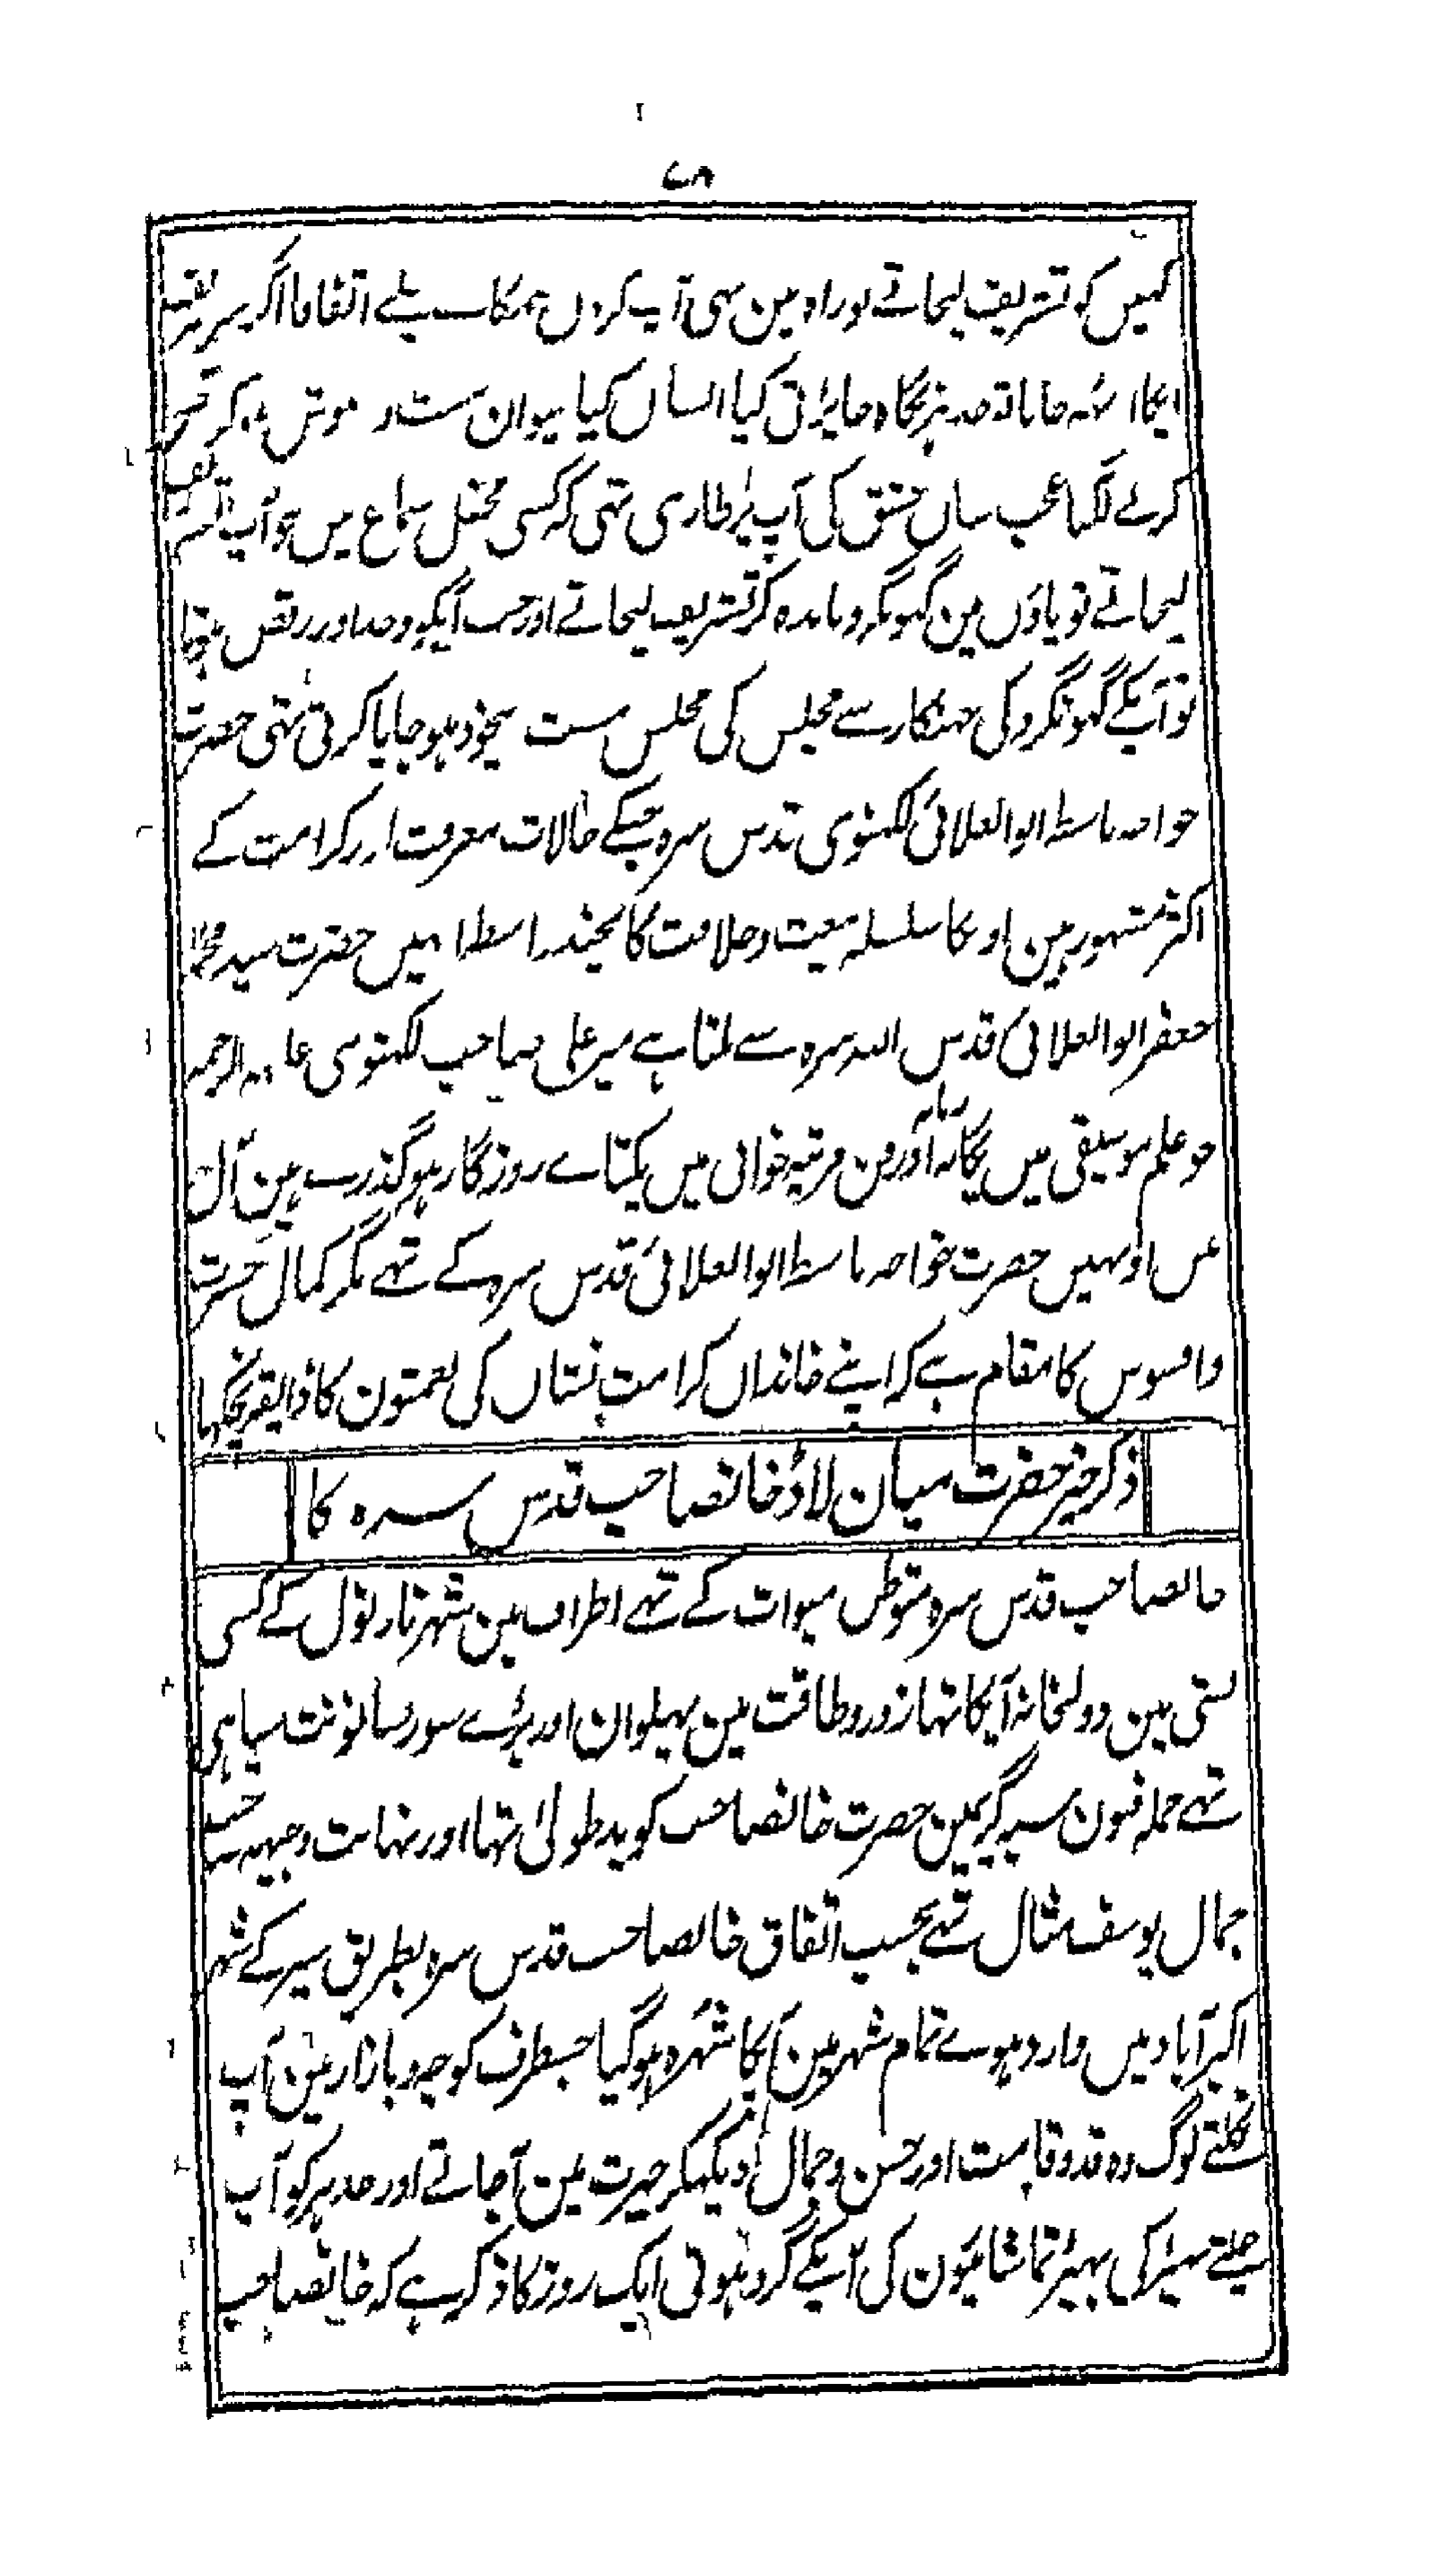 ۷۸
کہیں کو تشریف لیجاتے اور راہ مین بہی آپ کے ہمرکاب چلے اتفاقاً اگر
جانا تو جدہر نگاہ جا پڑتی کیا انسان کیا حیوان مست و ہو کر
کرنے لگتا عجب سان عشق کی آپ پر طاری تہی کہ کسی محفل سماع میں جو آپ تشریف
لیجاتے تو پاوَں مین گہونگرو باندہ کر تشریف لیجاتے اور جب آپکو وجد اور رقص ہوتا
تو آپکے گہونگرو کی جہنکار سے مجلس کی مجلس مست بیخود ہو جایا کرتی تہی حضرت
خواجہ باسط ابوالعلائی لکہنوی قدس سرہ جنکے حالات معرفت اور کرامت کے
اکثر مشہور ہین اونکا سلسلہ بیعت و خلافت کا بچند واسطہ انہیں حضرت سید محمد
جعفر ابوالعلائی قدس اللہ سرہ سے ملتا ہے میر علی صاحب لکہنوی علیہ الرحمہ
جو علم موسیقی میں یگانہ زمانہ اور فن مرثیہ خوانی میں یکتاے روزگار ہو گذرے ہین آل
اونہیں حضرت خواجہ باسط ابوالعلائی قدس سرہ کے تہے مگر کمال حسرت
وافسوس کا مقام ہے کہ اپنے خاندان کرامت نشان کی نعمتون کا ذایقہ نچکہا
ذکر خیر حضرت میان لاڈ خانصاحب قدس سرہ کا
خانصاحب قدس سرہ متوطن میوات کے تہے اطراف مین شہر نارنول کے کسی
بستی مین دولتخانہ آپکا تہا زور و طاقت مین پہلوان اور بڑے سور ساونت سپاہی
تہے جملہ فنون سپہ گری مین حضرت خانصاحب کو ید طولیٰ تہا اور نہایت وجیہہ صاحب
جمال یوسف مثال تہے بحسب اتفاق خانصاحب قدس سرہ بطریق سیر کے شہر
اکبرآباد میں وارد ہوے تمام شہر مین آپکا شُہرہ ہو گیا جسطرف کوچہ و بازار مین آپ
نکلتے لوگ وہ قد و قامت اور حسن و جمال دیکہکر حیرت مین آجاتے اور جدہر کو آپ
چلتے بہیڑ کی بہیڑ تماشائیون کی آپکے گرد ہوتی ایک روز کا ذکر ہے کہ خانصاحب